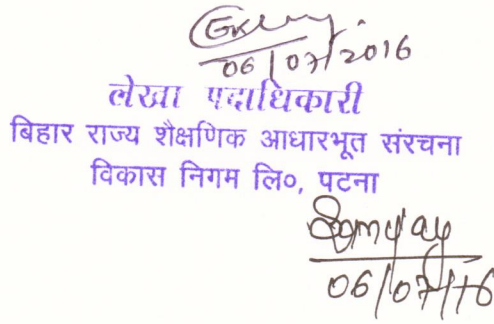 06/07/2016
लेखा पदाधिकारी
बिहार राज्य शैक्षणिक आधारभूत संरचना
विकास निगम लि०, पटना
06/07/16